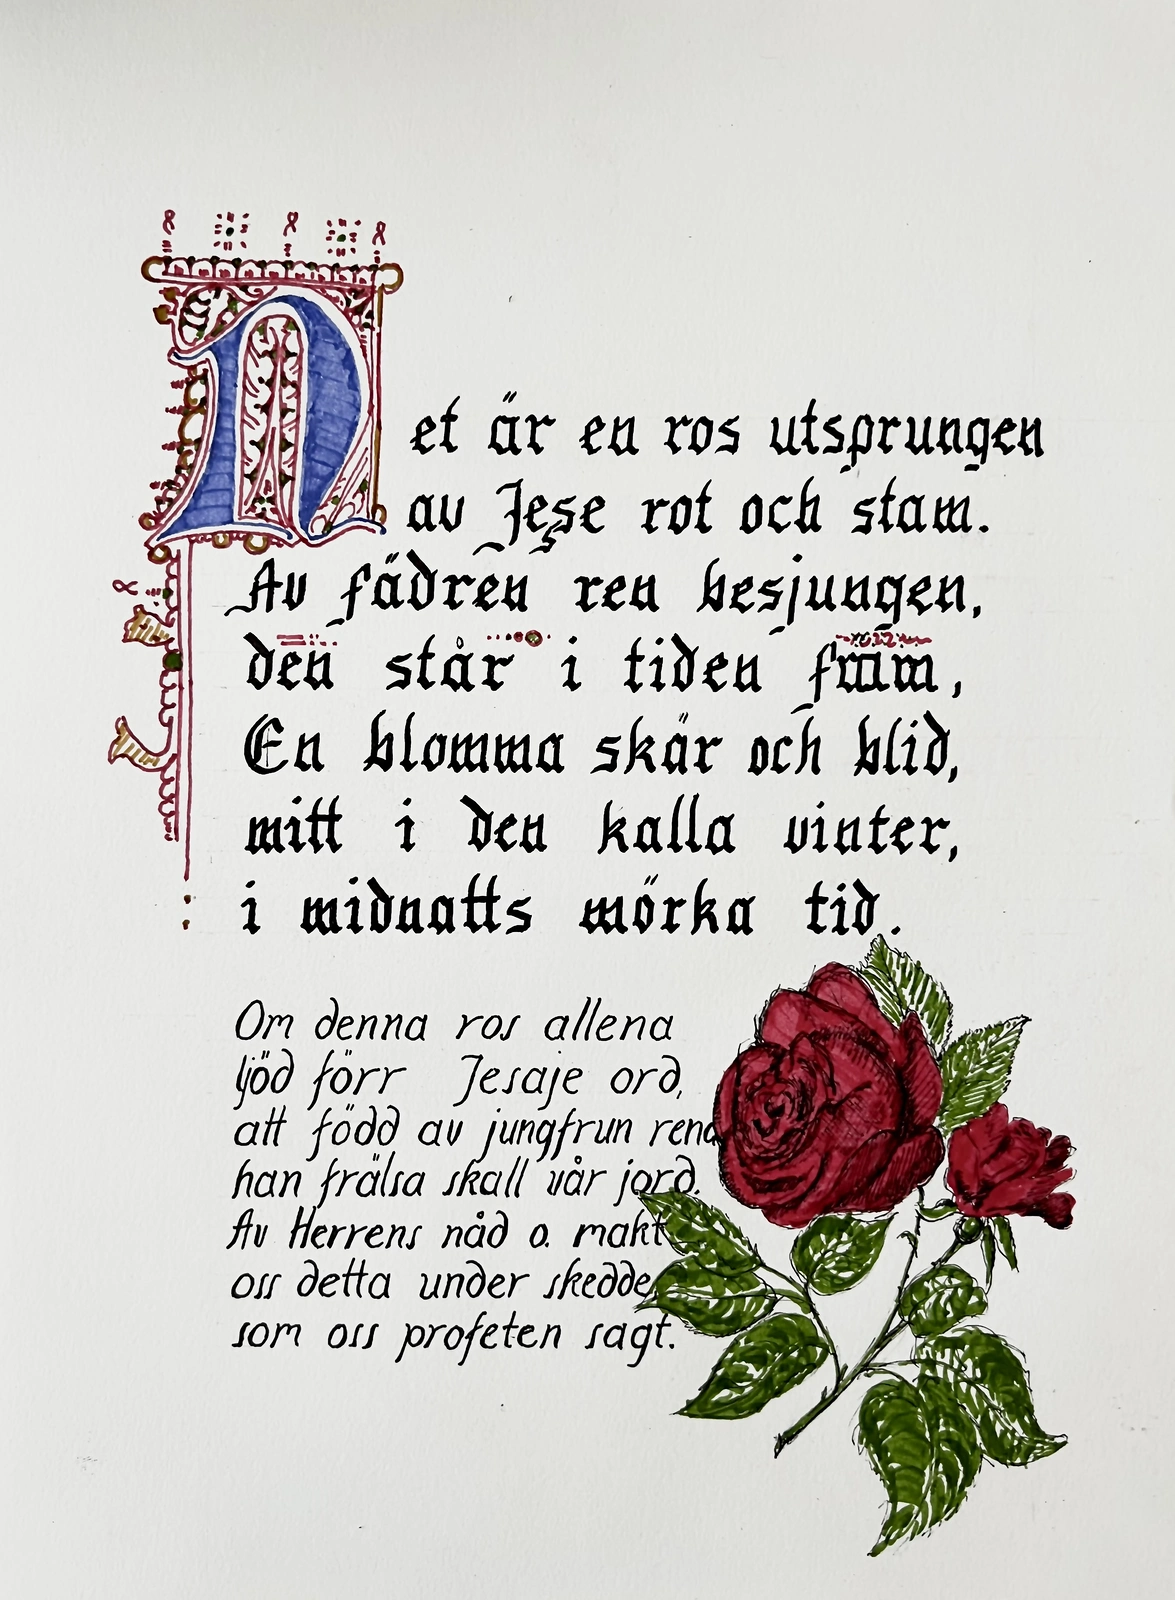 Det är en ros utsprungen
av Jese rot och stam.
Av fädren ren besjungen,
den står i tiden fram,
En blomma skär och blid,
mitt i den kalla vinter,
i midnatts mörka tid.
Om denna ros allena
ljöd förr Jesaje ord,
att född av jungfrun rena
han frälsa skall vår jord.
Av Herrens nåd o. makt
oss detta under skedde,
som oss profeten sagt.